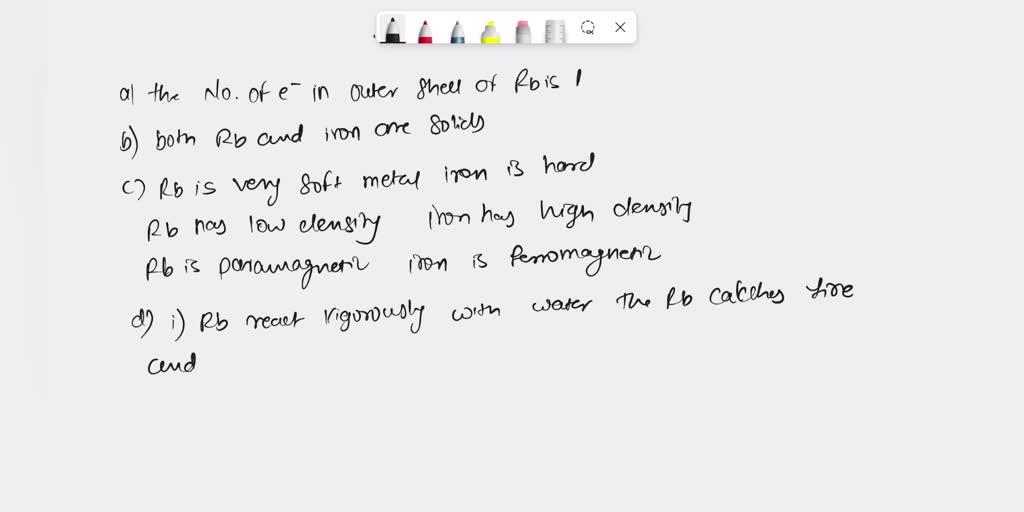 a) the No. of e⁻ in outer shell of Rb is 1
b) both Rb and iron are solids
c) Rb is very soft metal iron is hard
Rb has low density iron has high density
Rb is paramagnetic iron is ferromagnetic
d) i) Rb react vigorously with water the Rb catches fire
and